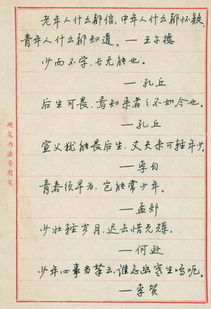 老年人什么都信，中年人什么都怀疑，
青年人什么都知道。—王尔德
少而不学，长无能也。
—孔丘
后生可畏，焉知来者之不如今也。
—孔丘
宣父犹能畏后生，丈夫未可轻年少。
—李白
青春须早为，岂能长少年。
—孟郊
少壮轻岁月，迟去惜光辉。
—何逊
少年心事当拏云，谁念幽寒坐呜呃。
—李贺
硬笔书法专用笺